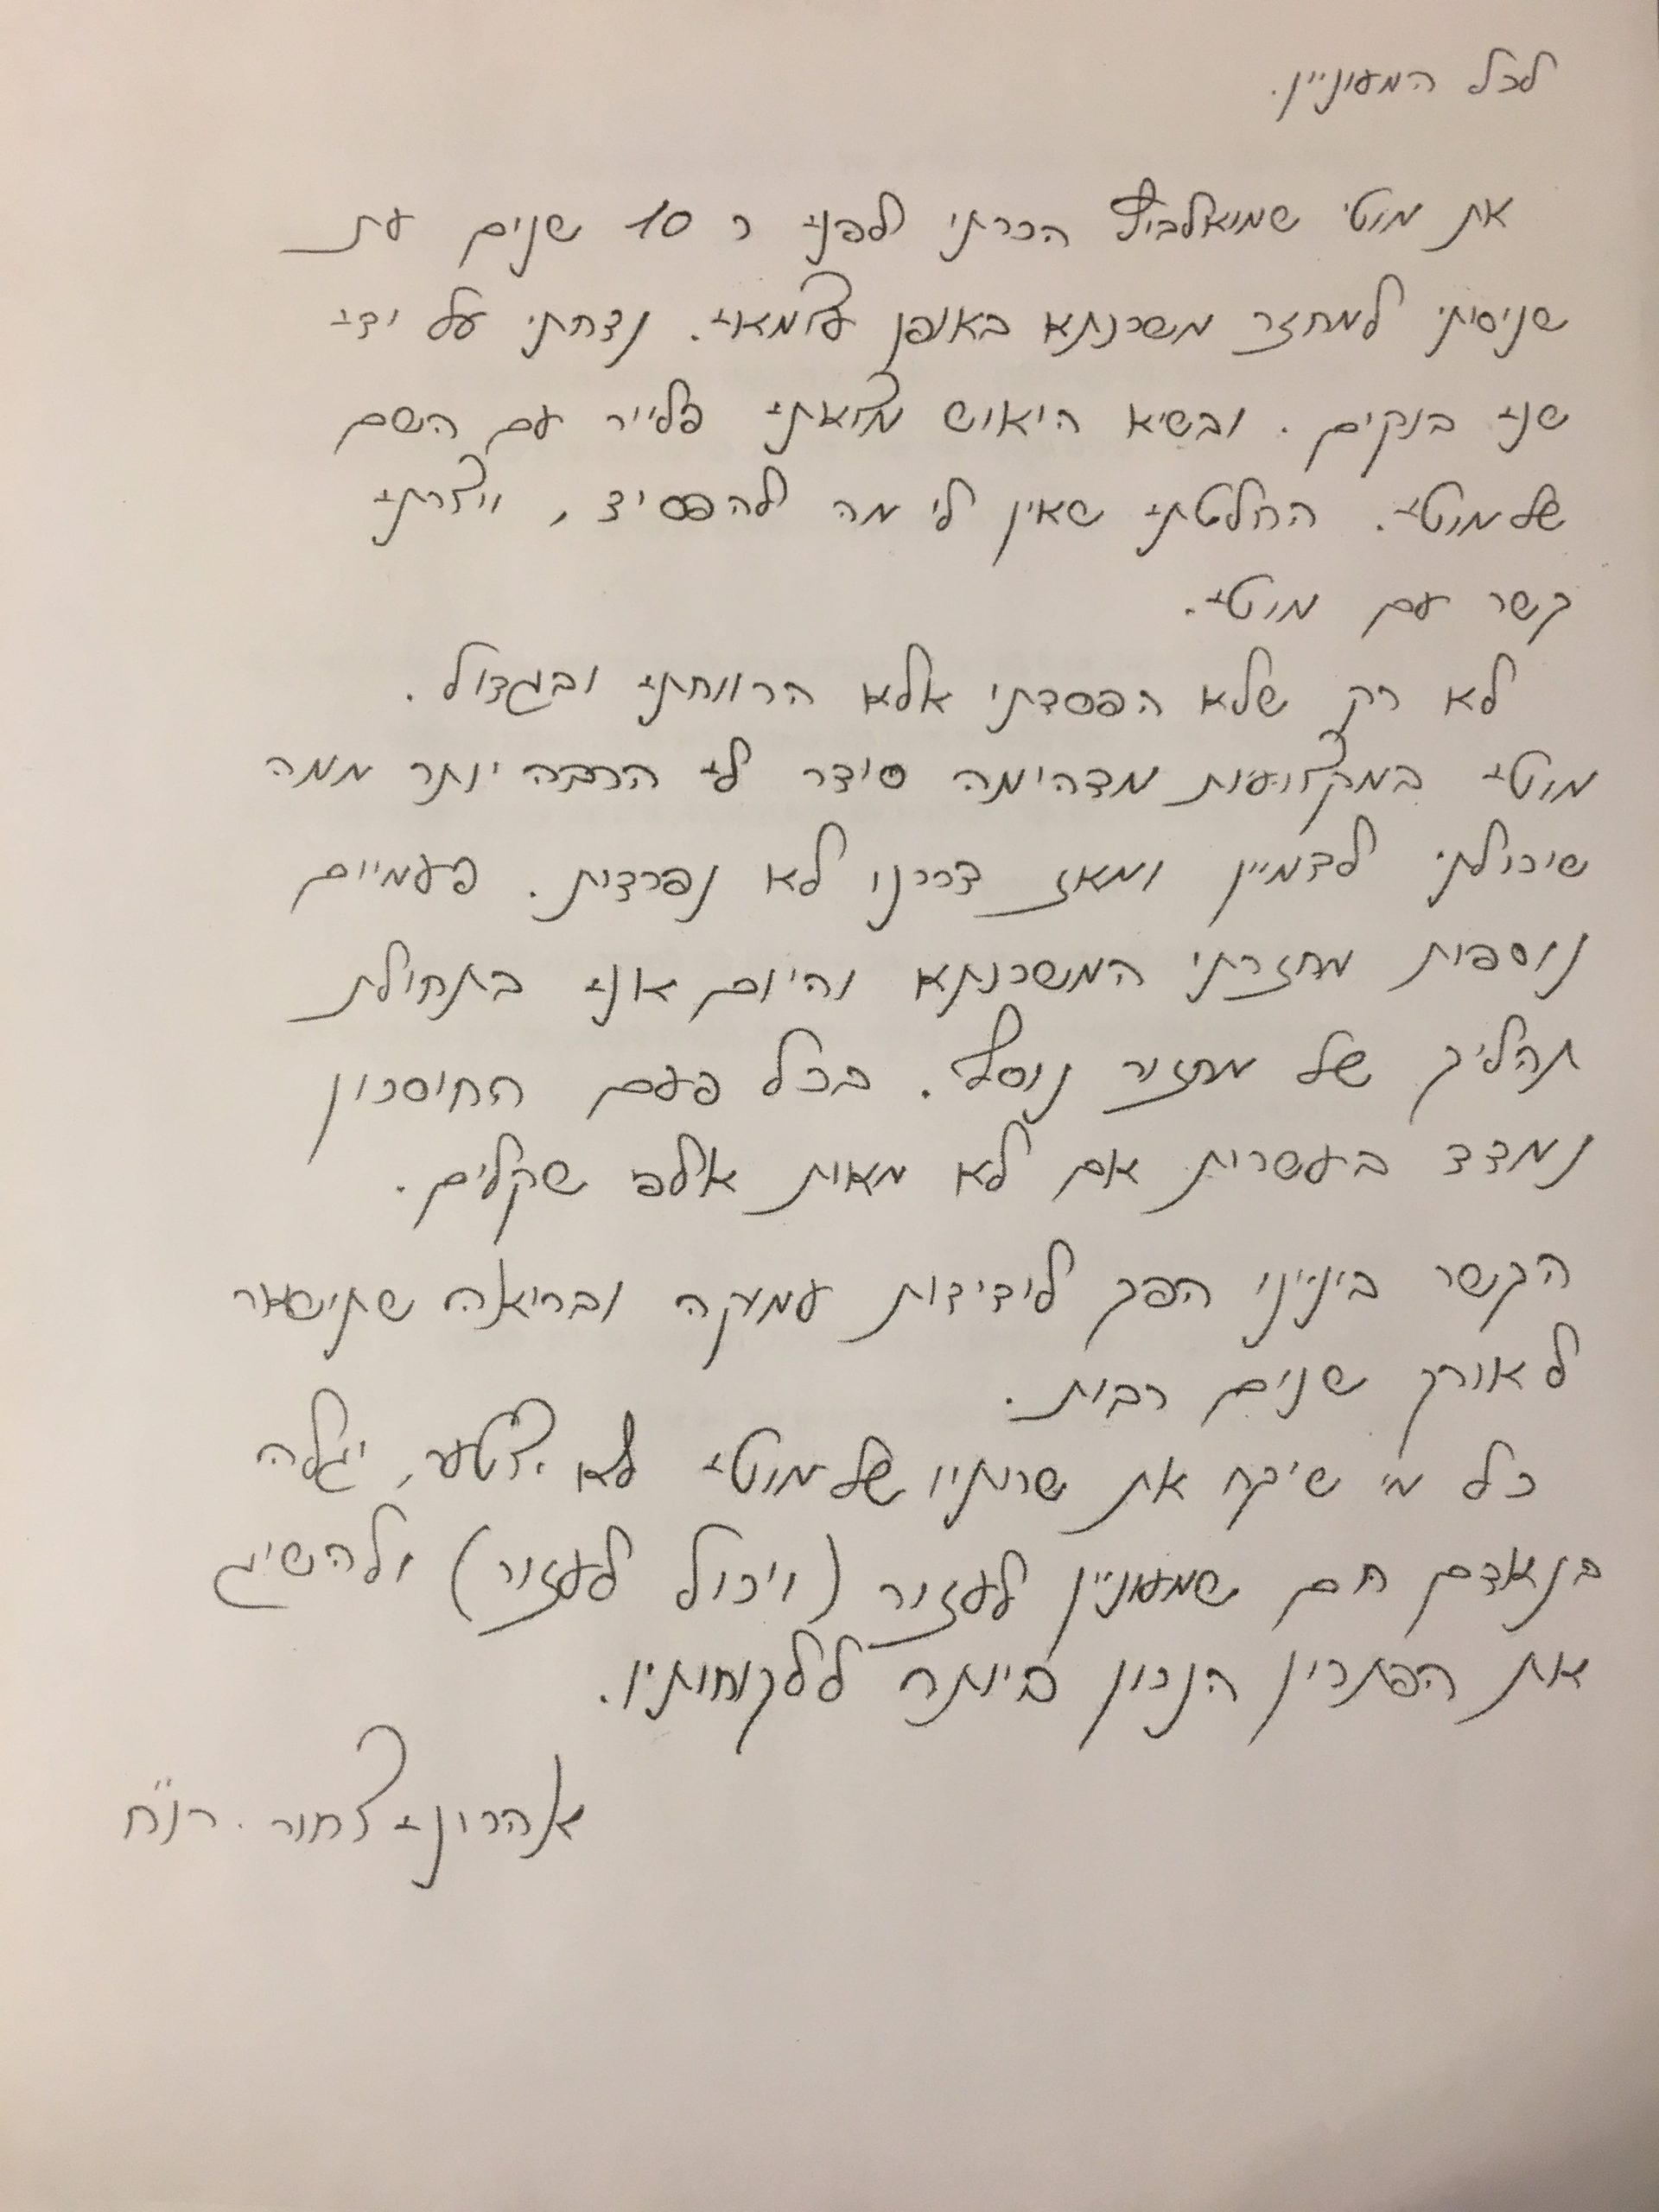 לכל המעוניין.
את מוטי שמואלביץ הכרתי לפני כ 10 שנים עת
שניסיתי למחזר משכנתא באופן עצמאי. נדחתי על ידי
שני בנקים. ובשיא היאוש מצאתי פלייר עם השם
של מוטי. החלטתי שאין לי מה להפסיד, ויצרתי
קשר עם מוטי.
לא רק שלא הפסדתי אלא הרווחתי ובגדול.
מוטי במקצועות מדהימה סידר לי הרבה יותר ממה
שיכולתי לדמיין ומאז דרכנו לא נפרדות. פעמיים
נוספות מחזרתי המשכנתא והיום אני בתחילת
תהליך של מחזור נוסף. בכל פעם החיסכון
נמדד בעשרות אם לא מאות אלפי שקלים.
הקשר בינינו הפך לידידות עמוקה ובריאה שתישאר
לאורך שנים רבות.
כל מי שיקח את שרותיו של מוטי לא יצטער, יגלה
בן אדם חם שמעוניין לעזור (ויכול לעזור) ולהשיג
את הפתרון הנכון ביותר ללקוחותיו.
אהרוני צחור. רו"ח